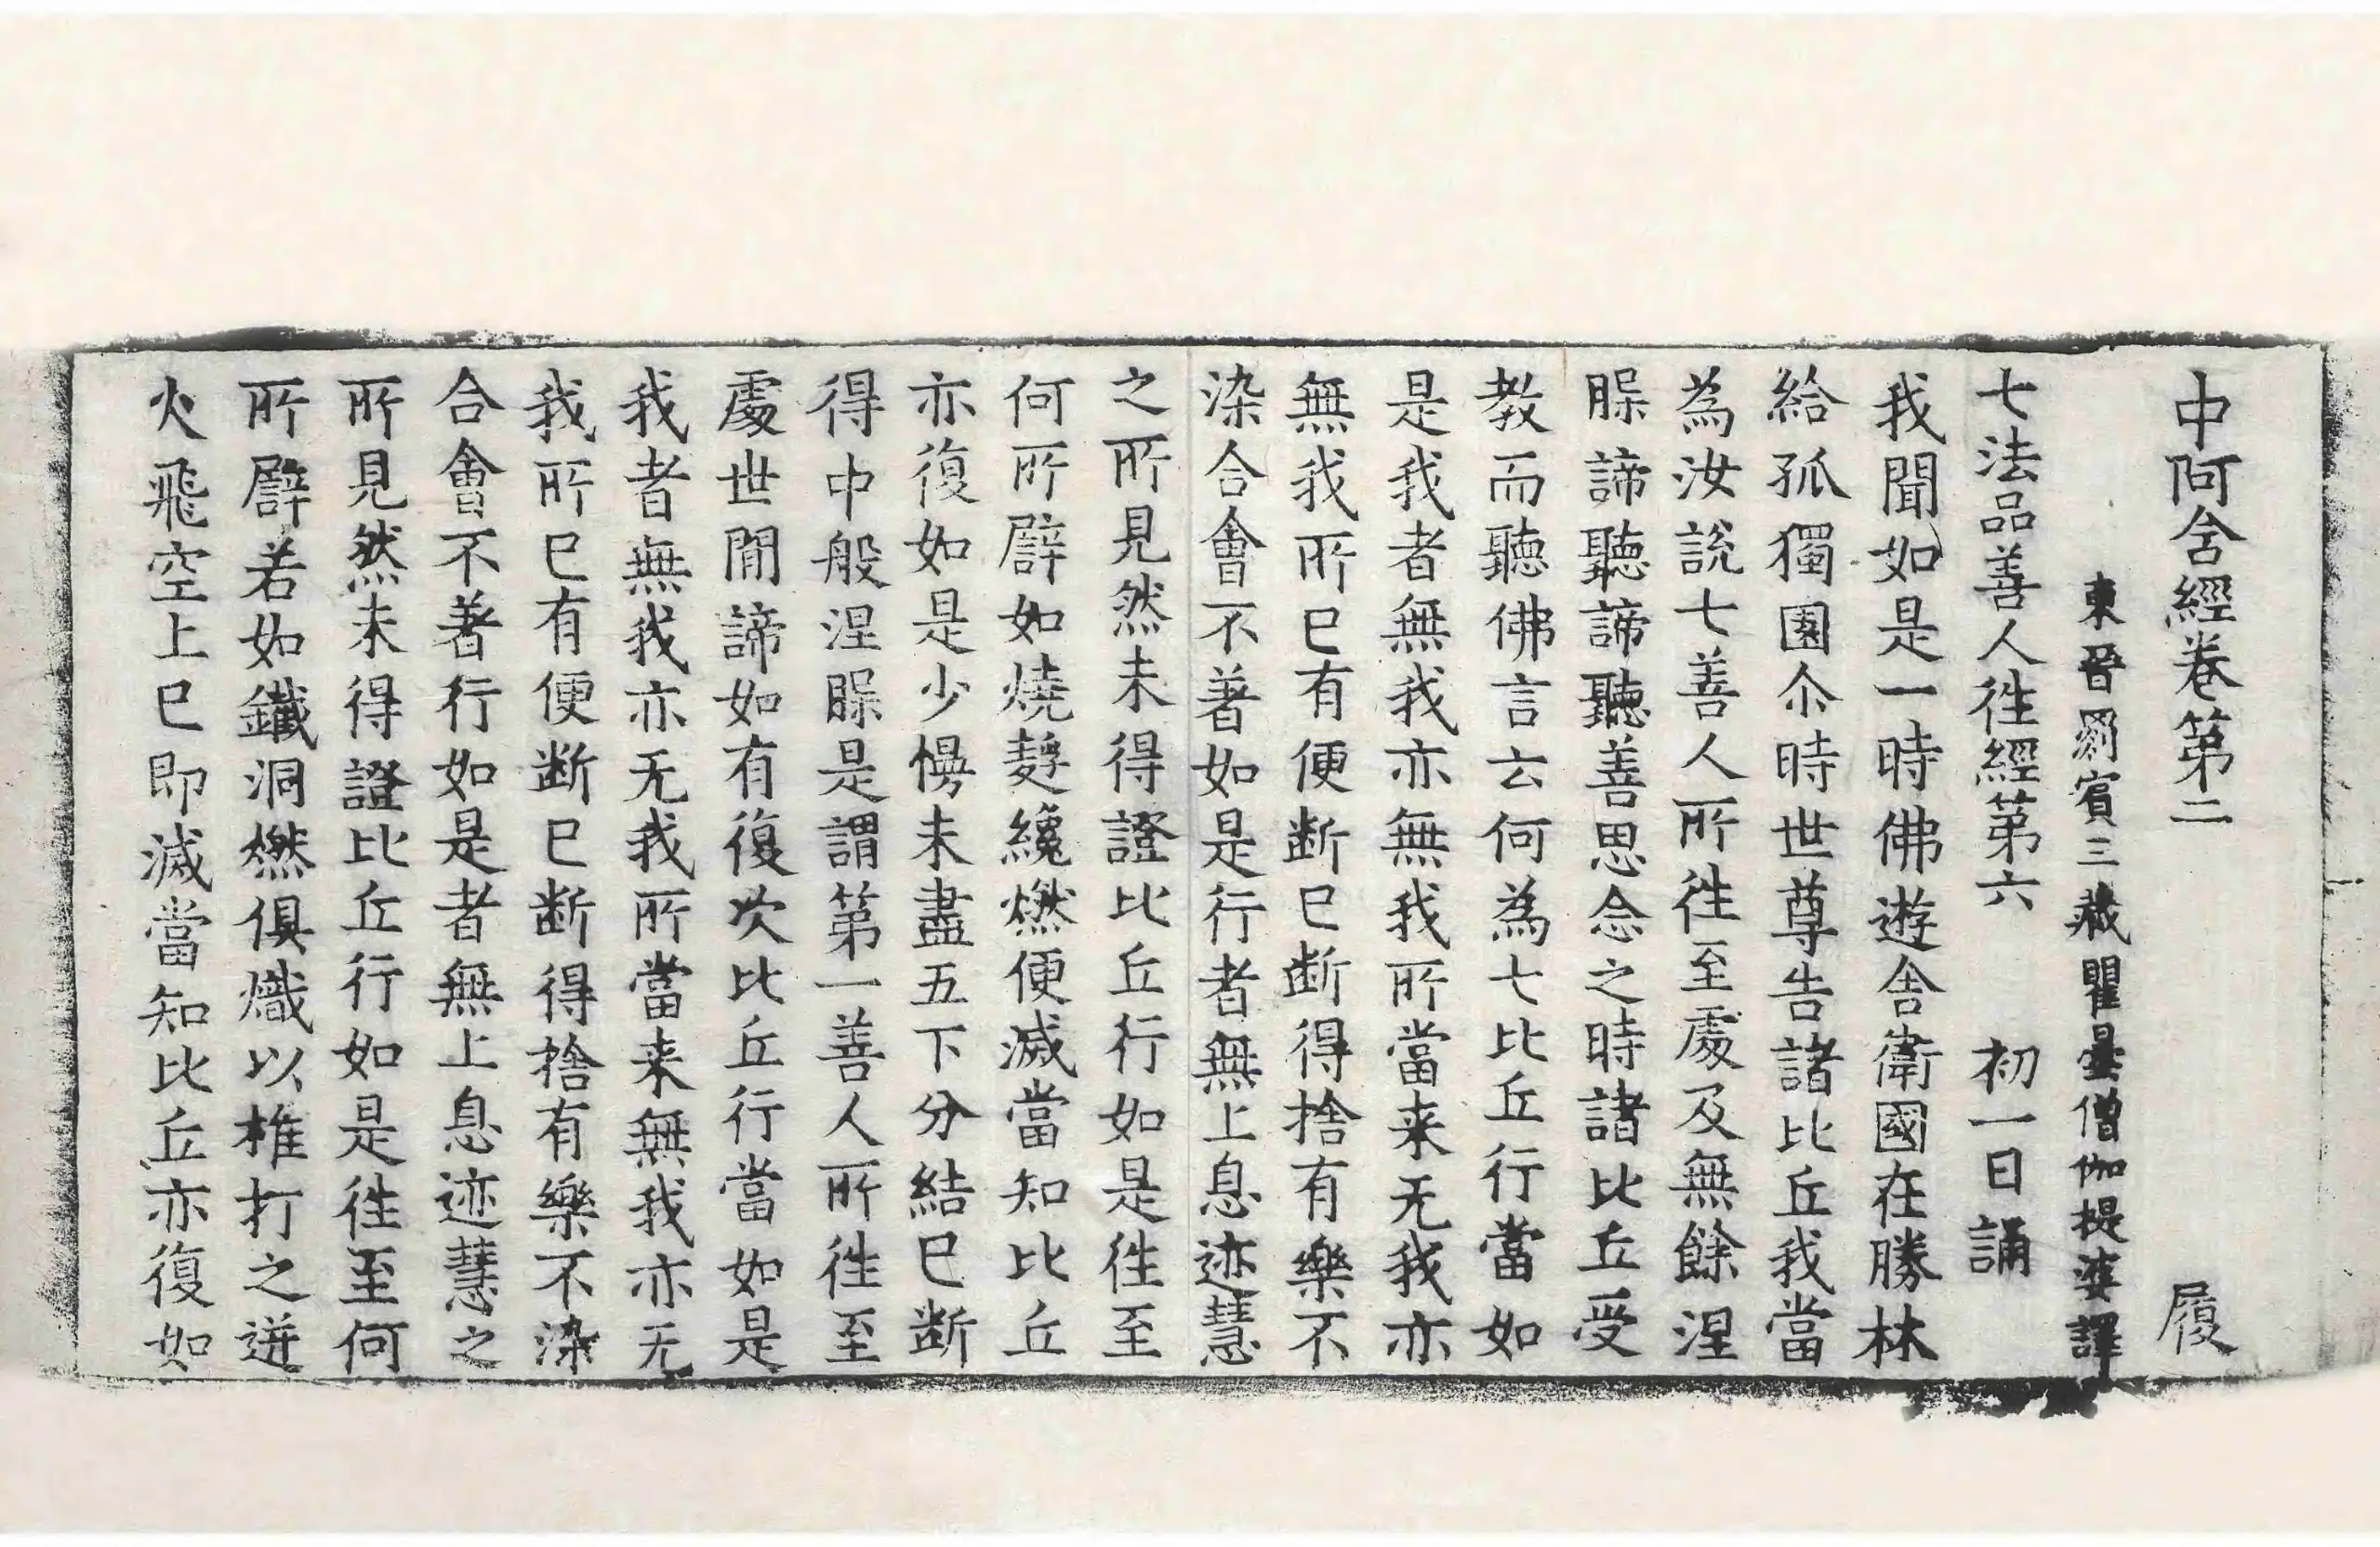 中阿含經卷第二　　　　履
東晉罽賓三藏瞿曇僧伽提婆譯
七法品善人往經第六　　初一日誦
我聞如是一時佛遊舍衛國在勝林
給孤獨園尒時世尊告諸比丘我當
為汝說七善人所往至處及無餘涅
槃諦聽諦聽善思念之時諸比丘受
教而聽佛言云何為七比丘行當如
是我者無我亦無我所當来无我亦
無我所已有便断已断得捨有樂不
染合會不著如是行者無上息迹慧
之所見然未得證比丘行如是往至
何所譬如燒䴬纔燃便滅當知比丘
亦復如是少慢未盡五下分結已断
得中般涅槃是謂第一善人所往至
處世間諦如有復次比丘行當如是
我者無我亦无我所當来無我亦无
我所已有便断已断得捨有樂不染
合會不著行如是者無上息迹慧之
所見然未得證比丘行如是往至何
所譬若如鐵洞燃俱熾以椎打之迸
火飛空上已即滅當知比丘亦復如